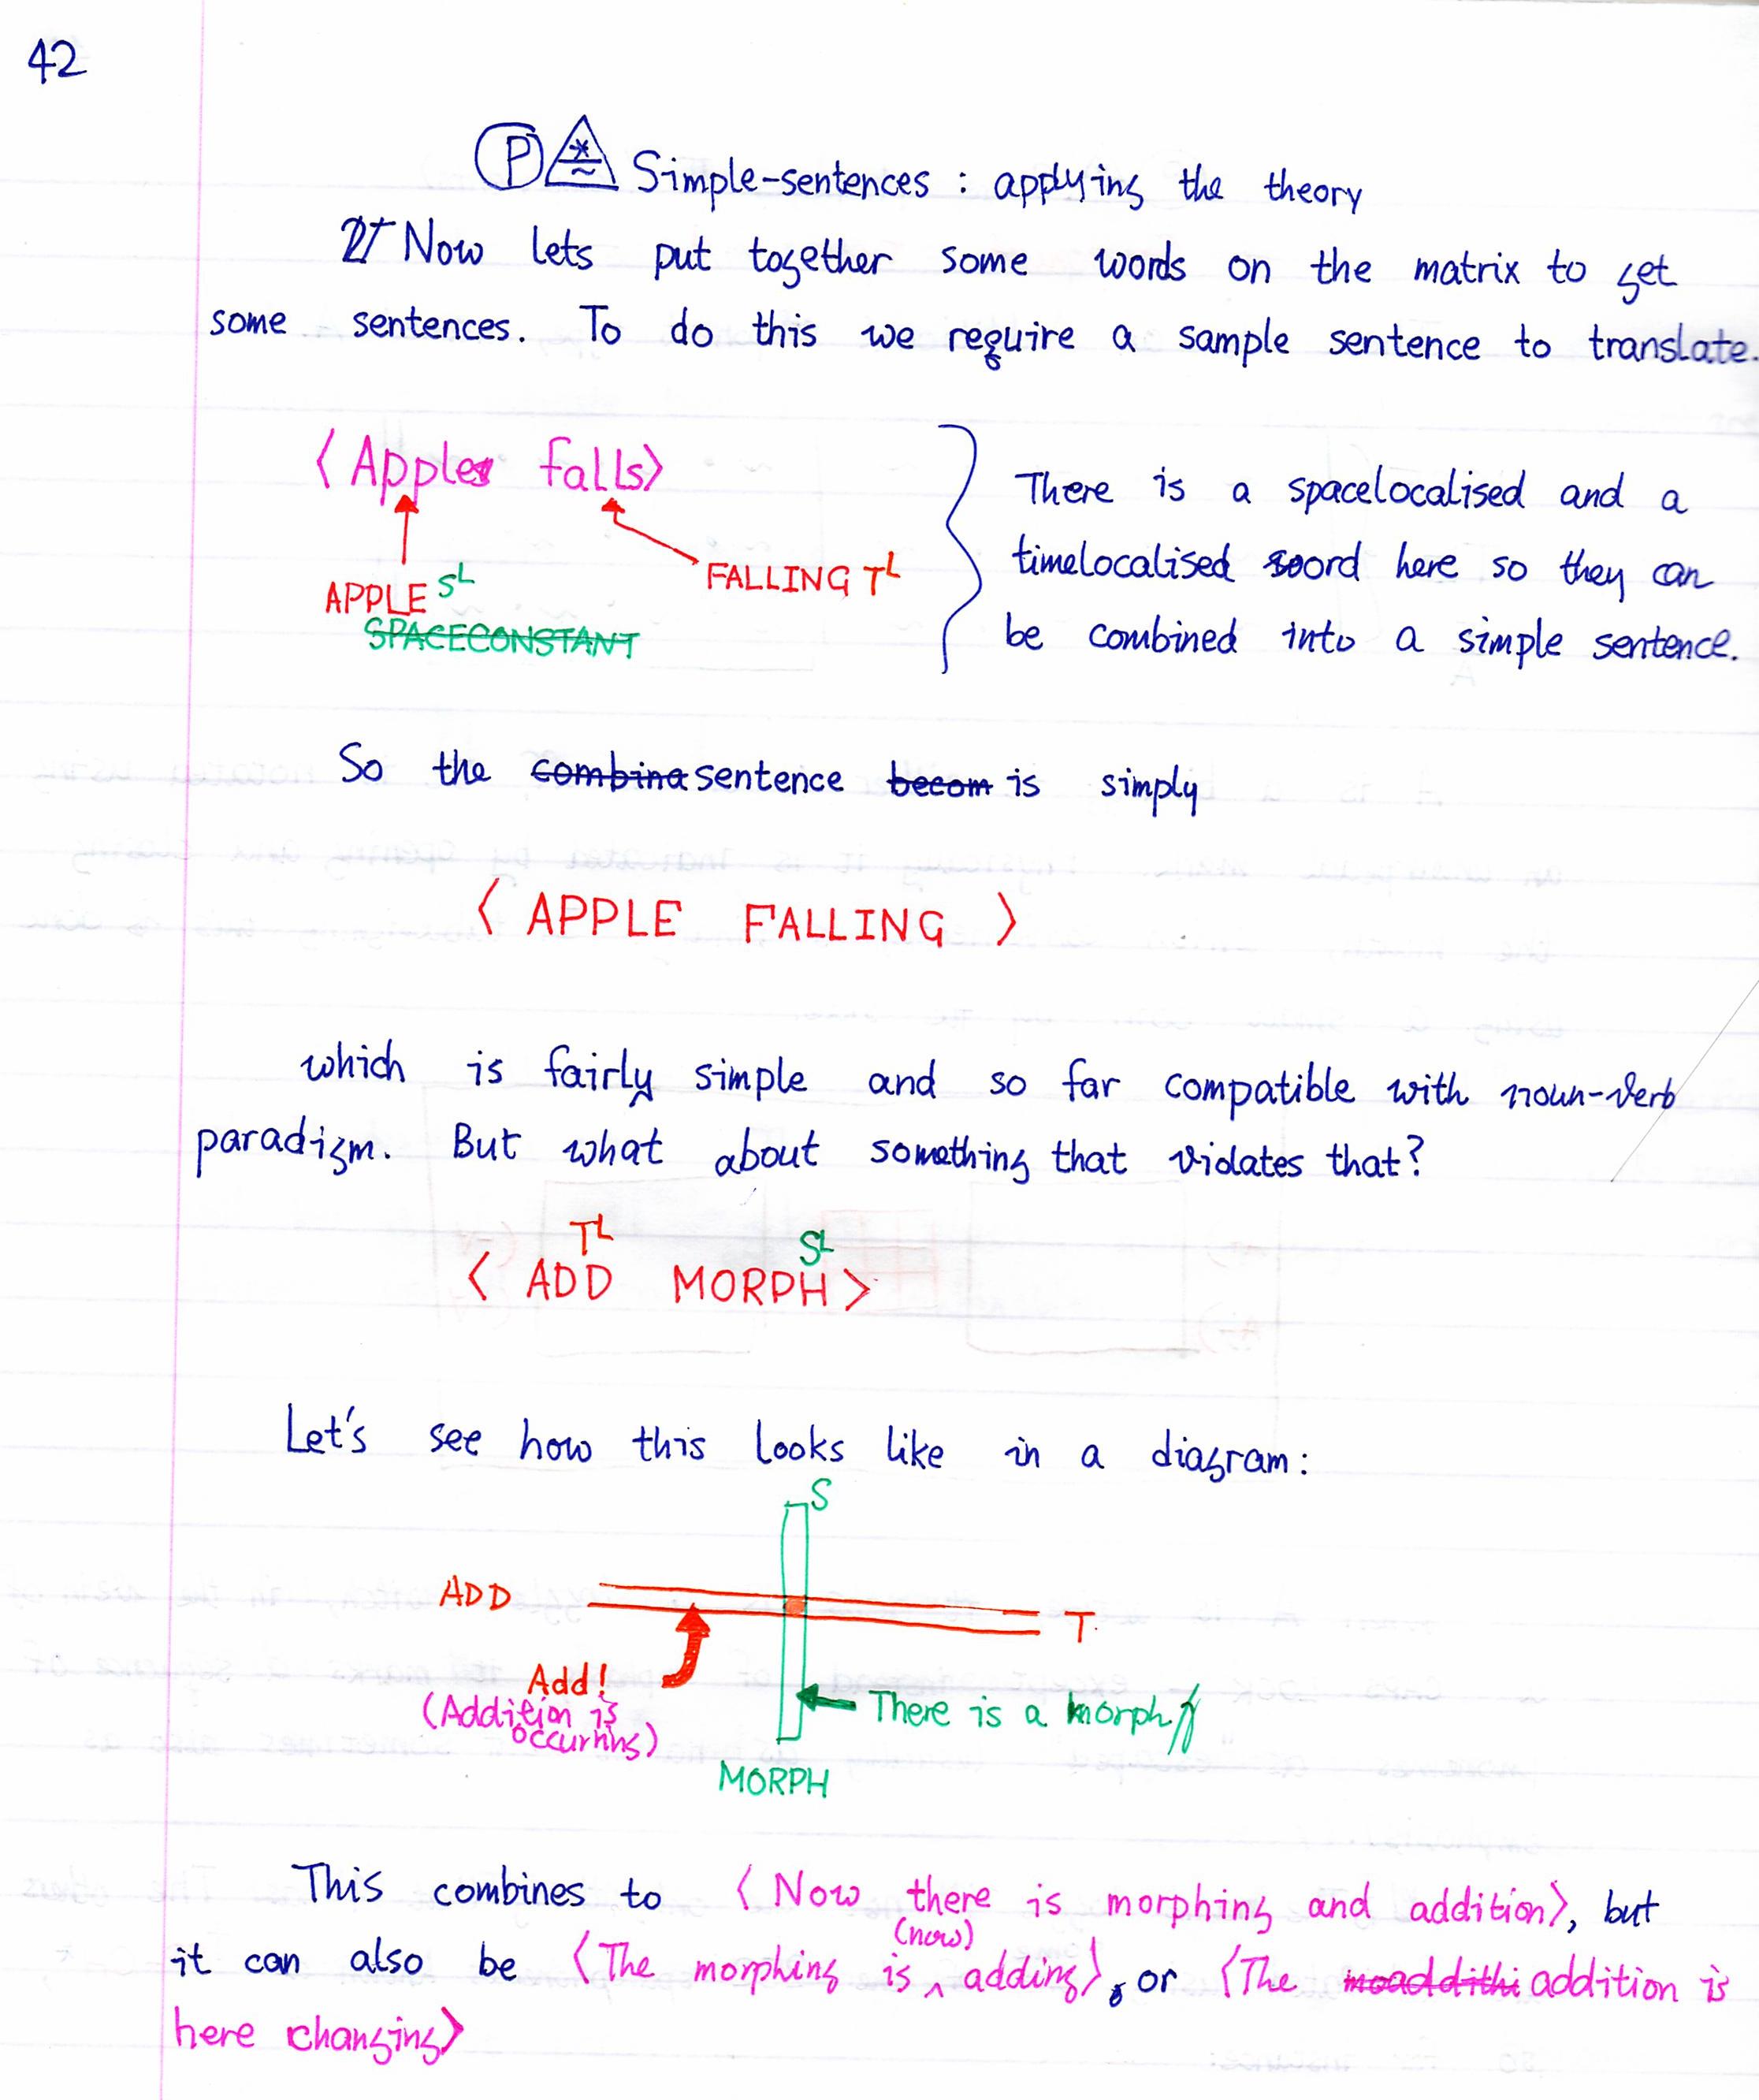 42
P * ~ Simple-sentences : applying the theory
Now lets put together some words on the matrix to get
some sentences. To do this we require a sample sentence to translate.
⟨Apple falls⟩
APPLE S^L
SPACECONSTANT
FALLING T^L
There is a spacelocalised and a
timelocalised word here so they can
be combined into a simple sentence.
So the combina sentence becom is simply
⟨ APPLE FALLING ⟩
which is fairly simple and so far compatible with noun-verb
paradigm. But what about something that violates that?
T^L S^L
⟨ ADD MORPH ⟩
Let's see how this looks like in a diagram:
S
ADD
T
Add!
(Addition is
occurring)
There is a morph
MORPH
This combines to ⟨Now there is morphing and addition⟩, but
it can also be ⟨The morphing is ^ (now) adding⟩, or ⟨The addition is
here changing⟩